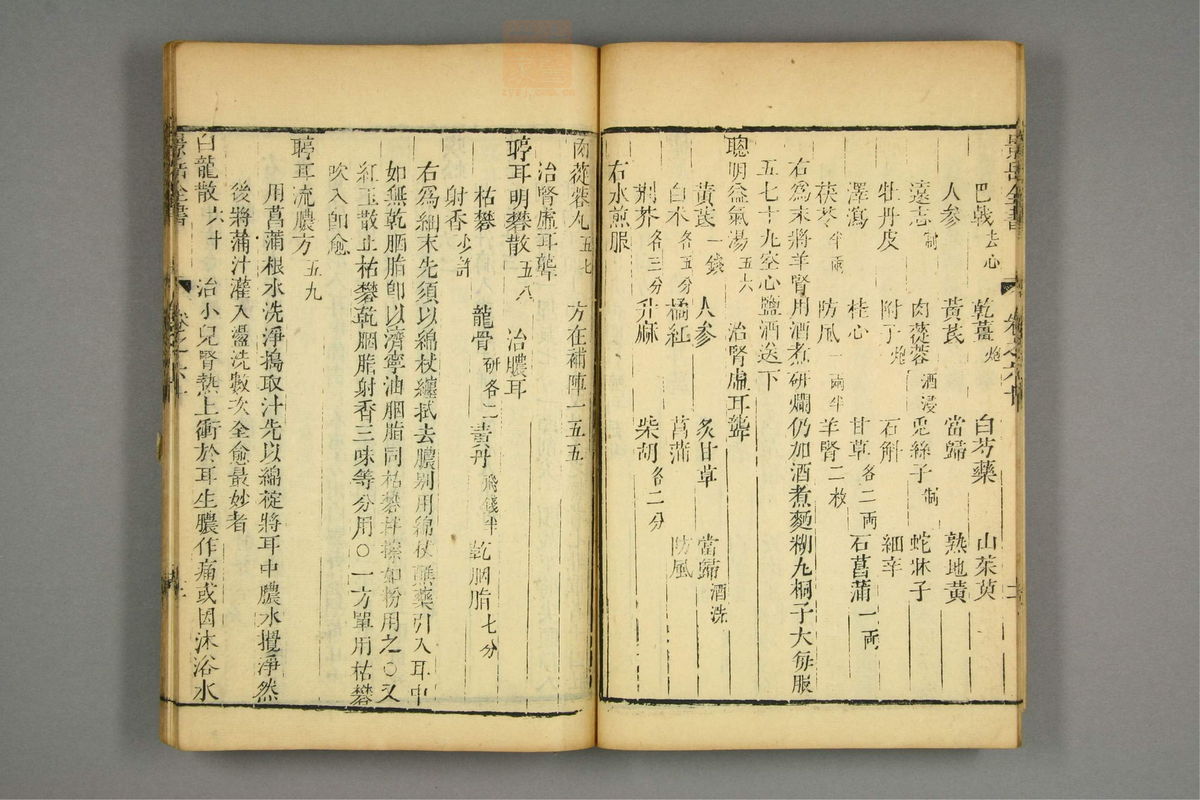 景岳全書 卷之六十
巴戟去心 乾薑炮 白芍藥 山茱萸
人參 黃芪 當歸 熟地黃
遠志制 肉蓯蓉酒浸 兎絲子制 蛇牀子
牡丹皮 附子炮 石斛 細辛
澤瀉 桂心 甘草各二兩 石菖蒲一兩
茯苓半兩 防風一兩半 羊腎二枚
右爲末將羊腎用酒煮研爛仍加酒煮麵糊丸桐子大每服
五七十丸空心鹽酒送下
聰明益氣湯五六 治腎虛耳聾
黃芪一錢 人參 炙甘草 當歸酒洗
白朮各五分 橘紅 菖蒲 防風
荆芥各三分 升麻 柴胡各二分
右水煎服
肉蓯蓉丸五七 方在補陣一五五
治腎虛耳聾
聤耳明礬散五八 治膿耳
枯礬 龍骨研各二 黃丹飛錢半 乾胭脂七分
射香少許
右爲細末先須以綿杖纏拭去膿别用綿杖蘸藥引入耳中
如無乾胭脂卽以濟寧油胭脂同枯礬拌擦如粉用之○又
紅玉散止枯礬乾胭脂射香三味等分用○一方單用枯礬
吹入卽愈
聤耳流膿方五九
用菖蒲根水洗淨搗取汁先以綿梃將耳中膿水攪淨然
後將蒲汁灌入盪洗數次全愈最妙者
白龍散六十 治小兒腎熱上衝於耳生膿作痛或因沐浴水
景岳全書